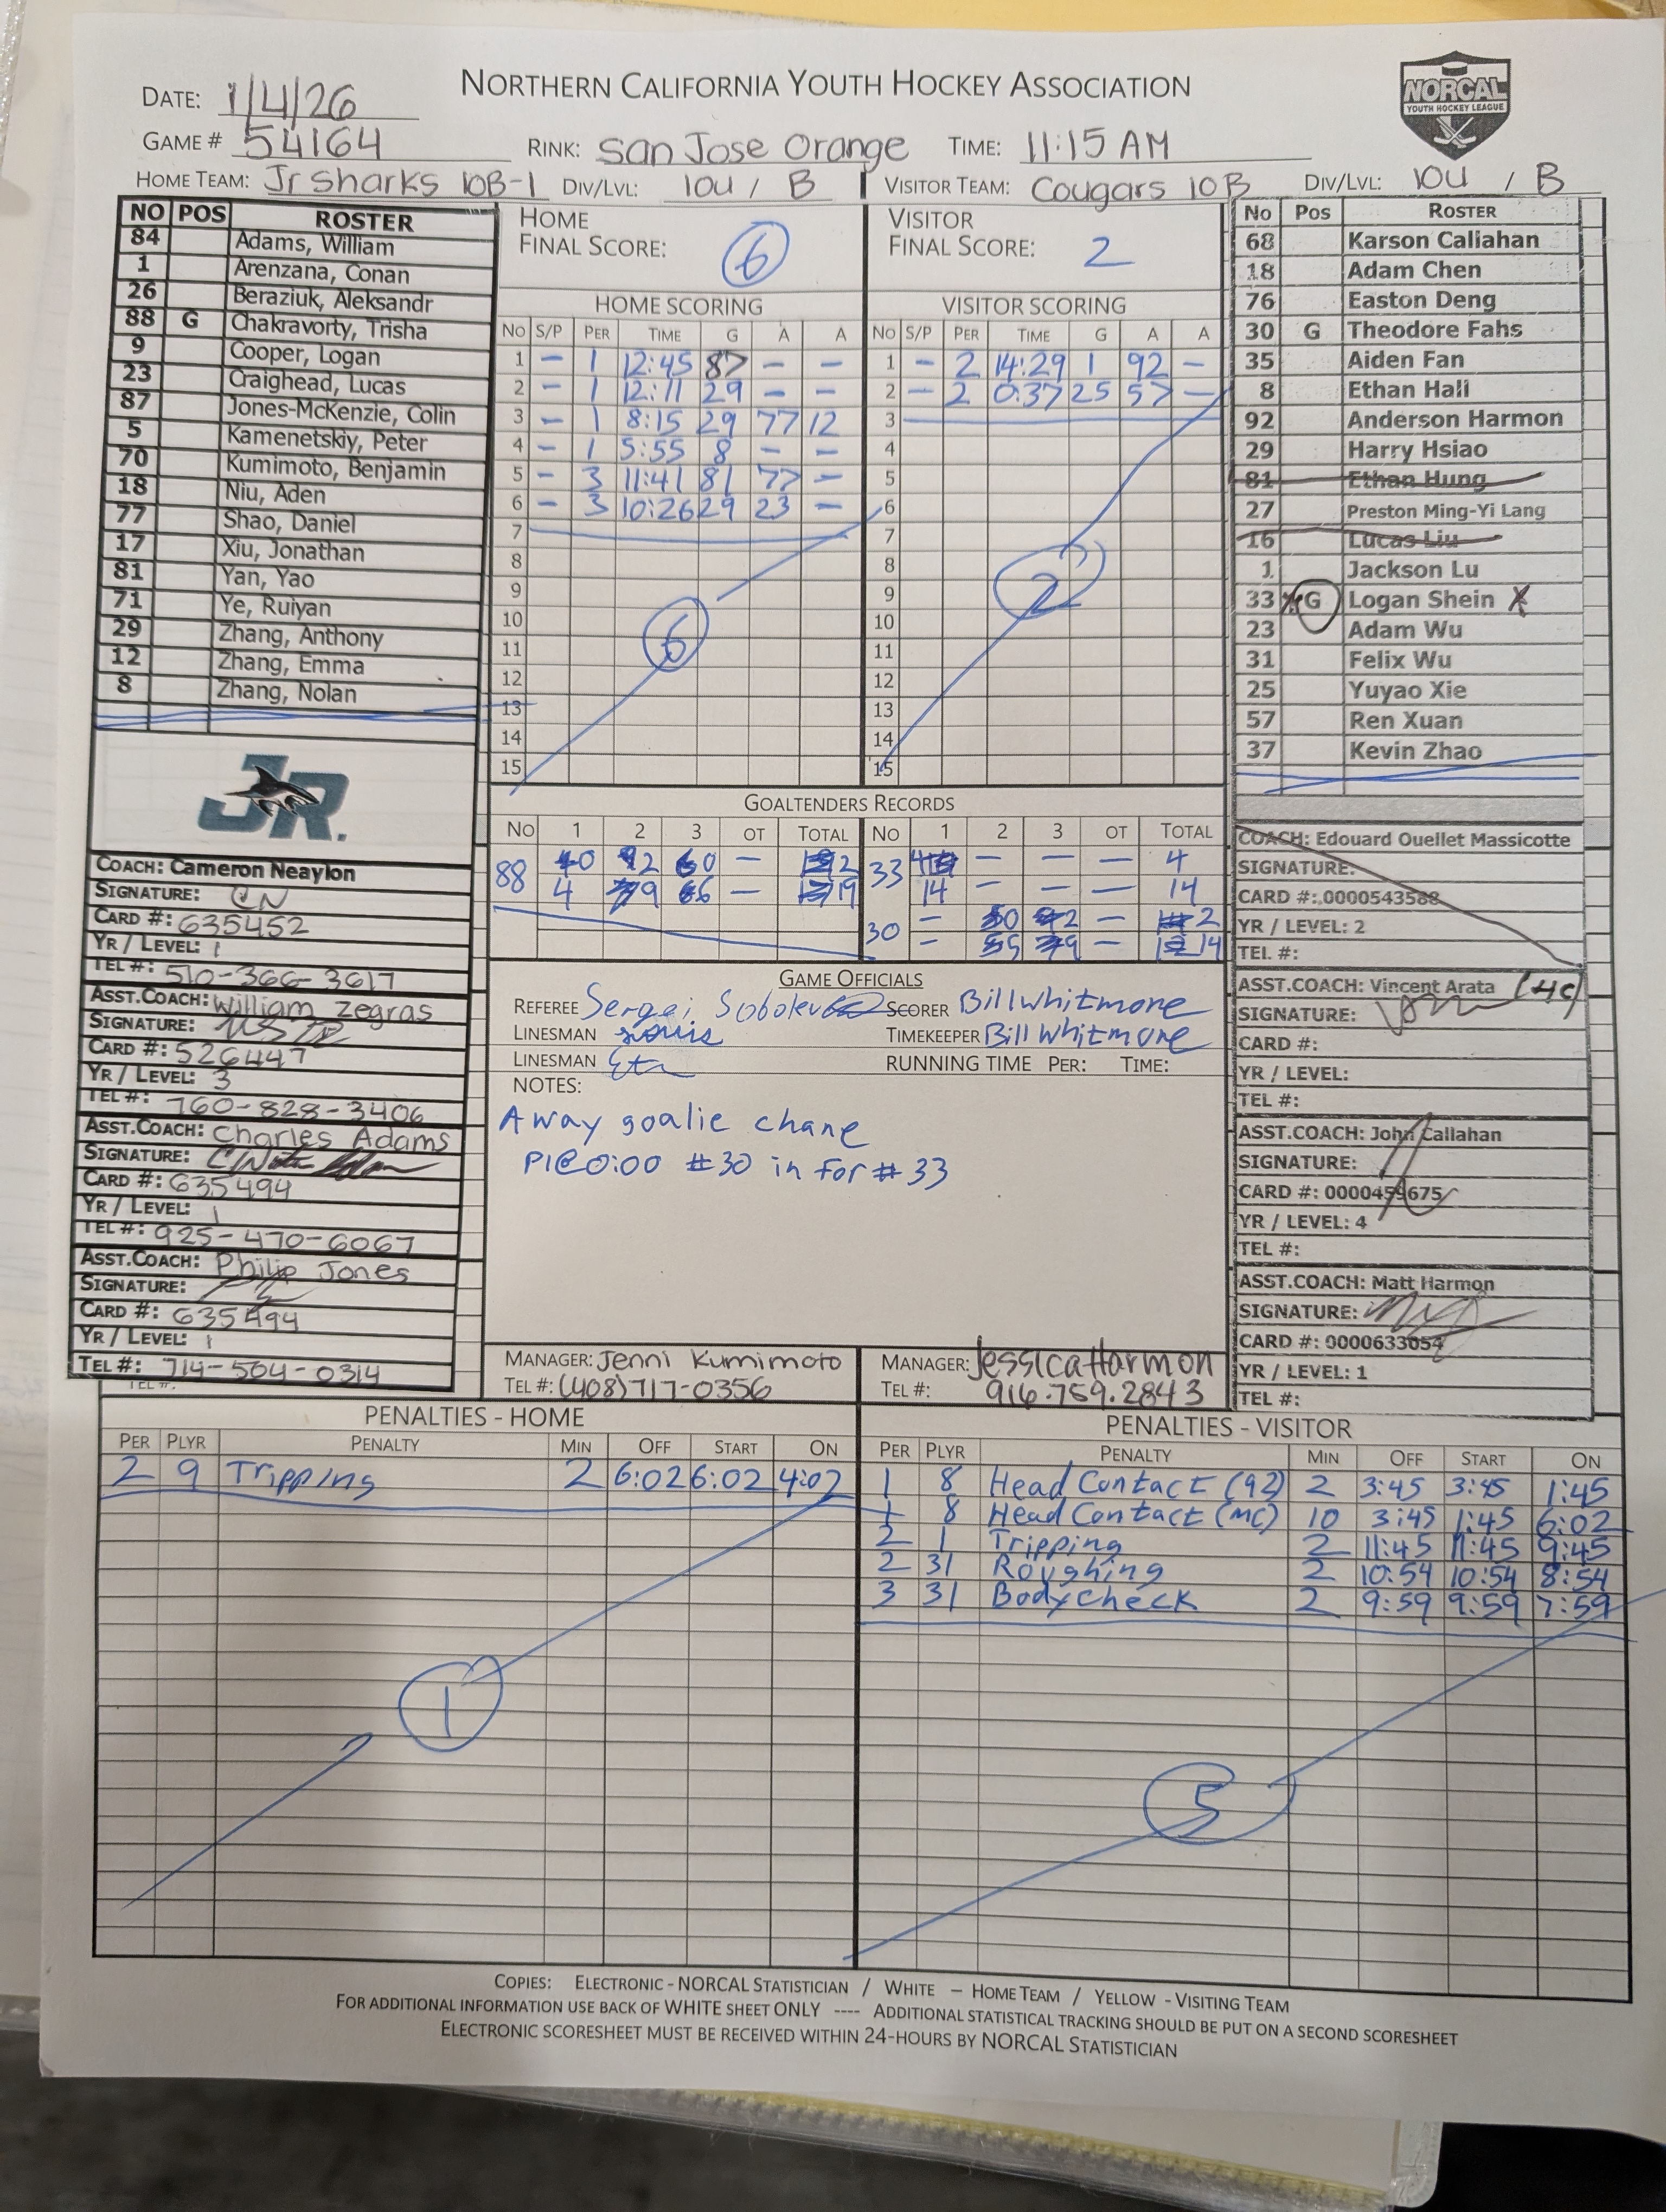 NORTHERN CALIFORNIA YOUTH HOCKEY ASSOCIATION
NORCAL
YOUTH HOCKEY LEAGUE
DATE: 1/4/26
GAME # 54164 RINK: San Jose Orange TIME: 11:15 AM
HOME TEAM: Jr Sharks 10B-1 DIV/LVL: 10U / B VISITOR TEAM: Cougars 10B DIV/LVL: 10U / B
NO POS ROSTER
84 Adams, William
1 Arenzana, Conan
26 Beraziuk, Aleksandr
88 G Chakravorty, Trisha
9 Cooper, Logan
23 Craighead, Lucas
87 Jones-McKenzie, Colin
5 Kamenetskiy, Peter
70 Kumimoto, Benjamin
18 Niu, Aden
77 Shao, Daniel
17 Xiu, Jonathan
81 Yan, Yao
71 Ye, Ruiyan
29 Zhang, Anthony
12 Zhang, Emma
8 Zhang, Nolan
JR.
COACH: Cameron Neaylon
SIGNATURE: CN
CARD #: 635452
YR / LEVEL: 1
TEL #: 510-366-3617
ASST.COACH: William Zegras
SIGNATURE:
CARD #: 526447
YR / LEVEL: 3
TEL #: 760-828-3406
ASST.COACH: Charles Adams
SIGNATURE:
CARD #: 635494
YR / LEVEL: 1
TEL #: 925-470-6067
ASST.COACH: Philip Jones
SIGNATURE:
CARD #: 635494
YR / LEVEL: 1
TEL #: 714-504-0314
TEL #:
HOME
FINAL SCORE: 6
HOME SCORING
NO S/P PER TIME G A A
1 – 1 12:45 87 – –
2 – 1 12:11 29 – –
3 – 1 8:15 29 77 12
4 – 1 5:55 8 – –
5 – 3 11:41 81 77 –
6 – 3 10:26 29 23 –
7
8
9
10
11
12
13
14
15
6
VISITOR
FINAL SCORE: 2
VISITOR SCORING
NO S/P PER TIME G A A
1 – 2 14:29 1 92 –
2 – 2 0:37 25 57 –
3
4
5
6
7
8
9
10
11
12
13
14
15
2
GOALTENDERS RECORDS
NO 1 2 3 OT TOTAL NO 1 2 3 OT TOTAL
88 0 2 0 – 2 33 4 – – – 4
4 9 6 – 19 14 – – – 14
30 – 0 2 – 2
– 5 9 – 14
GAME OFFICIALS
REFEREE Sergei Sobolev SCORER Bill Whitmore
LINESMAN TIMEKEEPER Bill Whitmore
LINESMAN RUNNING TIME PER: TIME:
NOTES:
Away goalie chane
P1@0:00 #30 in for #33
MANAGER: Jenni Kumimoto
TEL #: (408)717-0356
MANAGER: Jessica Harmon
TEL #: 916.759.2843
No Pos ROSTER
68 Karson Caliahan
18 Adam Chen
76 Easton Deng
30 G Theodore Fahs
35 Aiden Fan
8 Ethan Hall
92 Anderson Harmon
29 Harry Hsiao
81 Ethan Hung
27 Preston Ming-Yi Lang
16 Lucas Liu
1 Jackson Lu
33 G Logan Shein X
23 Adam Wu
31 Felix Wu
25 Yuyao Xie
57 Ren Xuan
37 Kevin Zhao
COACH: Edouard Ouellet Massicotte
SIGNATURE:
CARD #: 0000543588
YR / LEVEL: 2
TEL #:
ASST.COACH: Vincent Arata (HC)
SIGNATURE:
CARD #:
YR / LEVEL:
TEL #:
ASST.COACH: John Callahan
SIGNATURE:
CARD #: 0000459675
YR / LEVEL: 4
TEL #:
ASST.COACH: Matt Harmon
SIGNATURE:
CARD #: 0000633054
YR / LEVEL: 1
TEL #:
PENALTIES - HOME
PER PLYR PENALTY MIN OFF START ON
2 9 Tripping 2 6:02 6:02 4:02
1
PENALTIES - VISITOR
PER PLYR PENALTY MIN OFF START ON
1 8 Head Contact (92) 2 3:45 3:45 1:45
1 8 Head Contact (MC) 10 3:45 1:45 6:02
2 1 Tripping 2 11:45 11:45 9:45
2 31 Roughing 2 10:54 10:54 8:54
3 31 Bodycheck 2 9:59 9:59 7:59
5
COPIES: ELECTRONIC - NORCAL STATISTICIAN / WHITE – HOME TEAM / YELLOW - VISITING TEAM
FOR ADDITIONAL INFORMATION USE BACK OF WHITE SHEET ONLY ---- ADDITIONAL STATISTICAL TRACKING SHOULD BE PUT ON A SECOND SCORESHEET
ELECTRONIC SCORESHEET MUST BE RECEIVED WITHIN 24-HOURS BY NORCAL STATISTICIAN